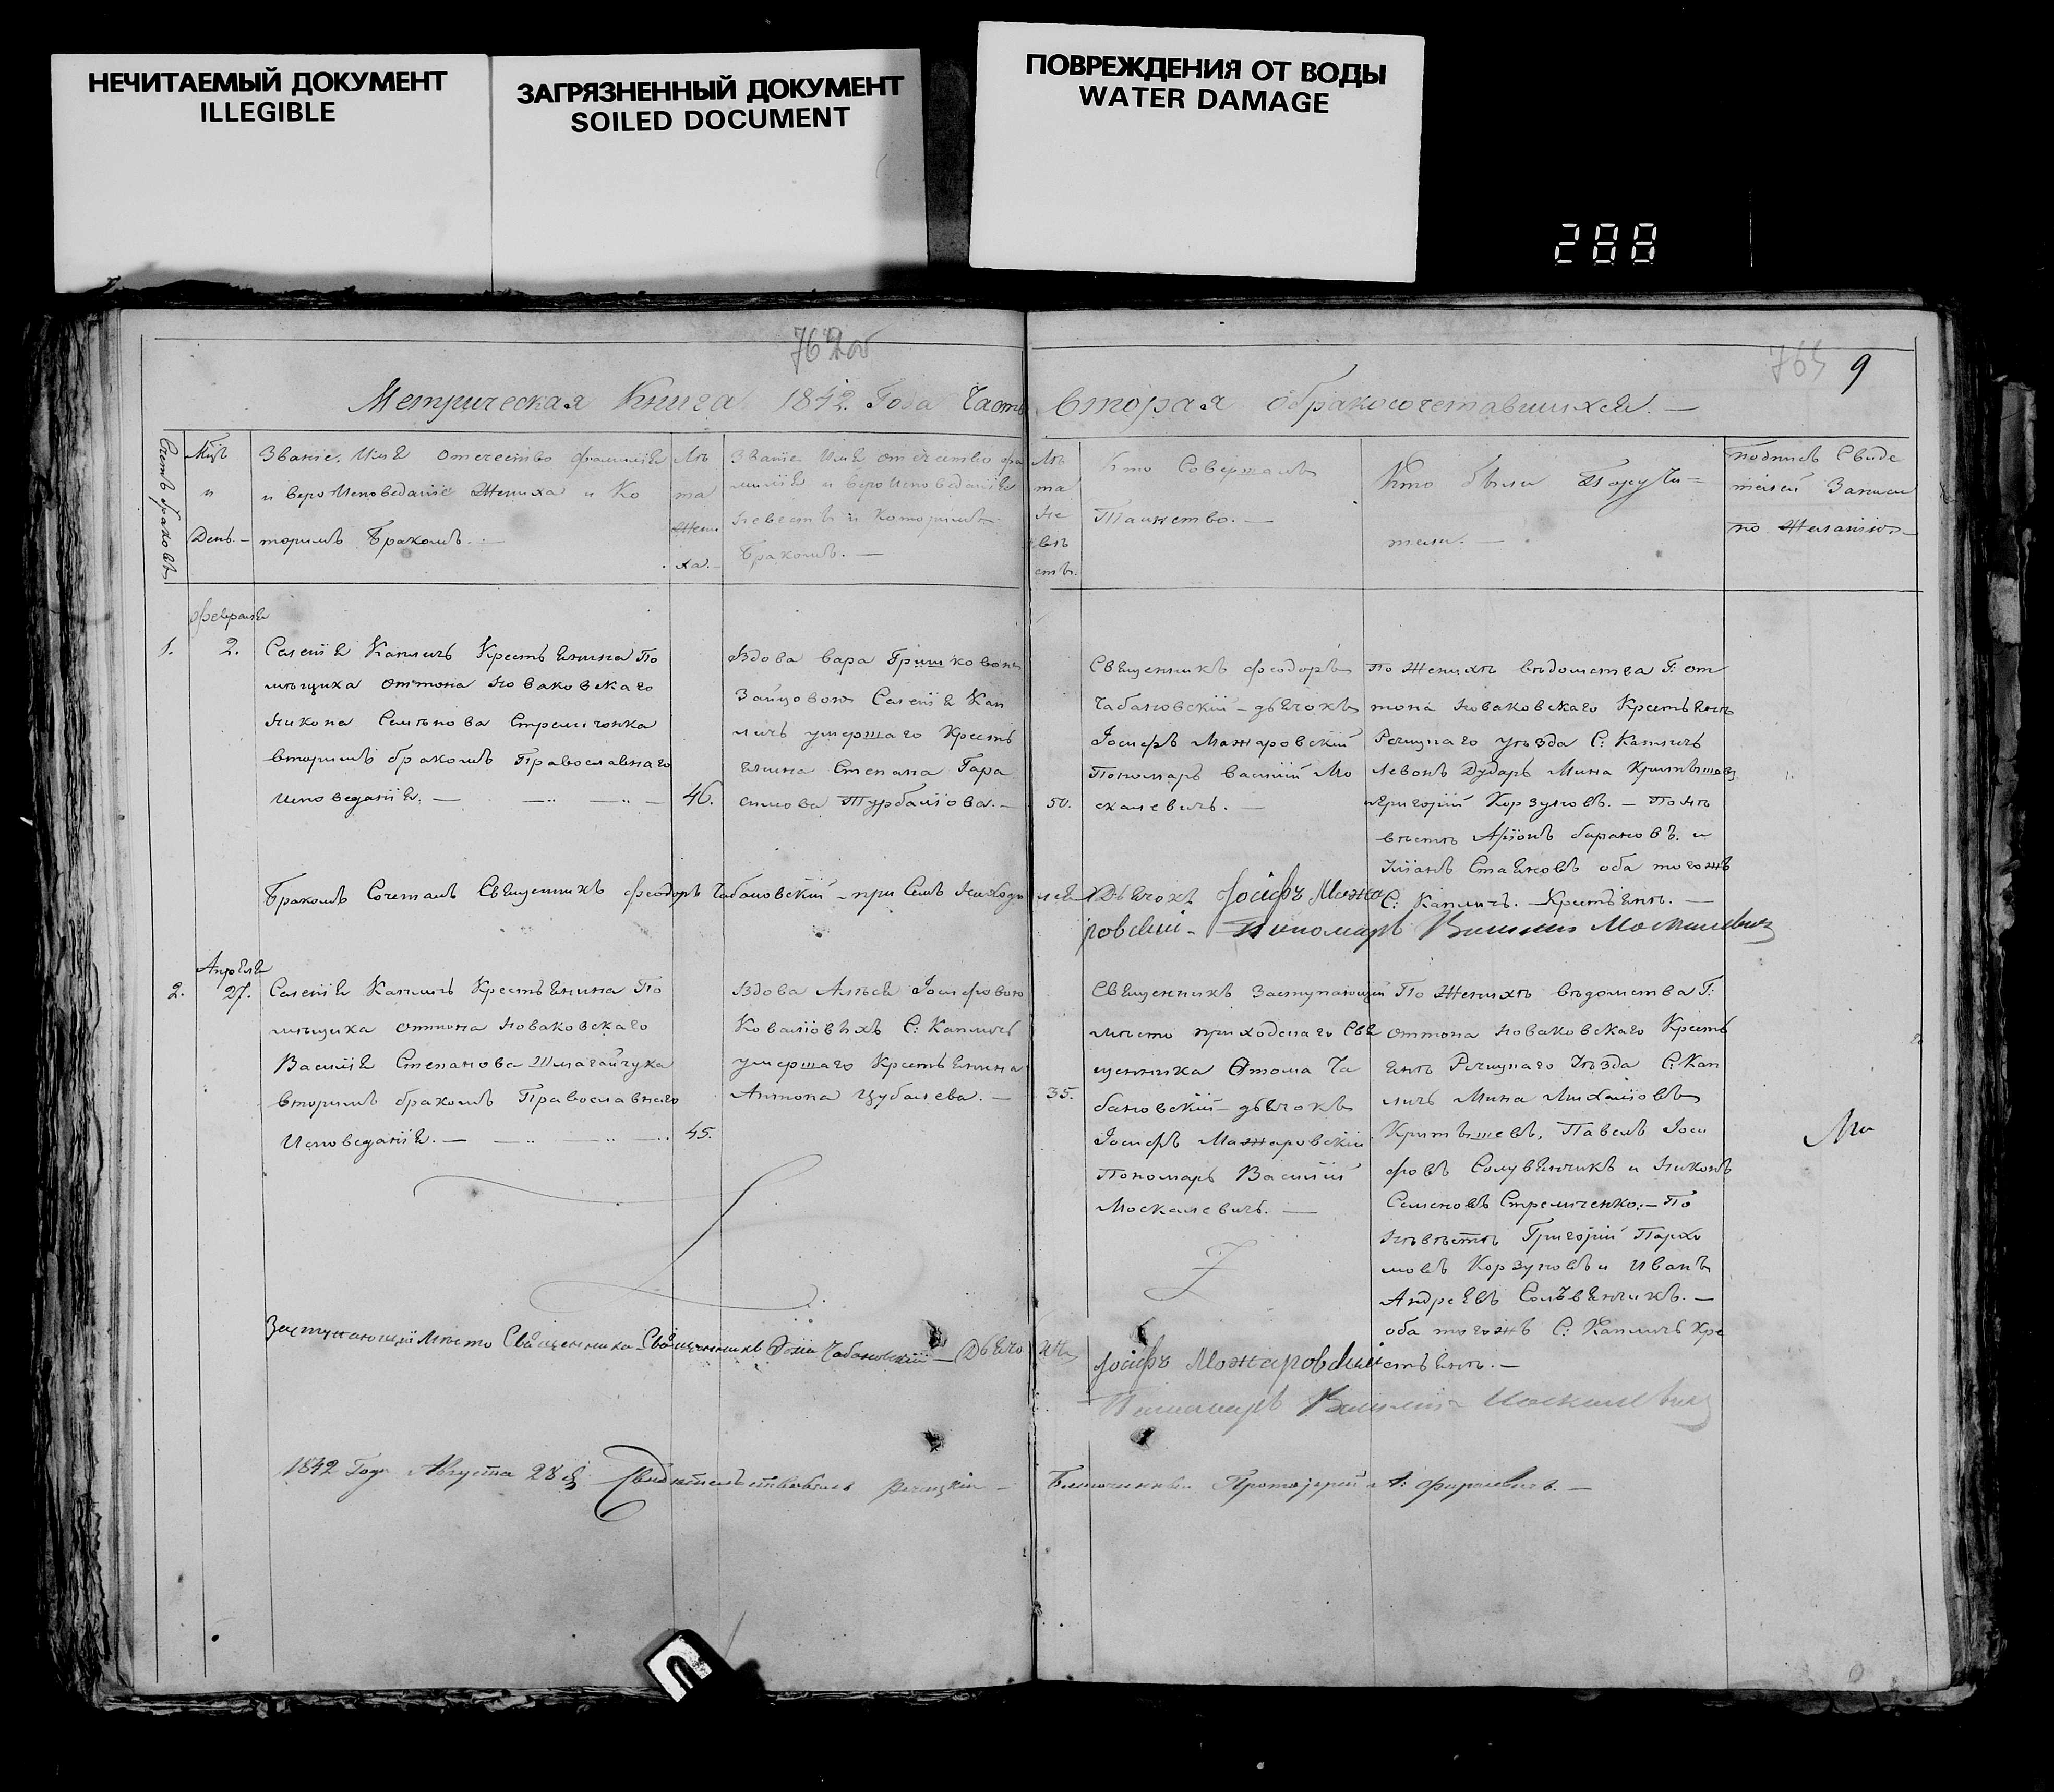 НЕЧИТАЕМЫЙ ДОКУМЕНТ
ILLEGIBLE
ЗАГРЯЗНЕННЫЙ ДОКУМЕНТ
SOILED DOCUMENT
ПОВРЕЖДЕНИЯ ОТ ВОДЫ
WATER DAMAGE
288
762об
9
Метрическая Книга 1842. Года Часть вторая о бракосочетавшихся. —
Счетъ браковъ
Мѣс.
и
День. —
Званіе. Имя отечество фамилія
и вероисповеданіе Жениха и Ко
торимъ бракомъ. —
Лѣ
та
Жени
ха. —
Званіе Имя отечество фа
милія и вероисповеданіе
Невесты и Которимъ
Бракомъ. —
Лѣ
та
Не
вѣ
сты.
Кто Совершалъ
Таинство. —
Кто были Поручи=
тели. —
подпись Свиде
телей Записи
по Желанію —
февраля
1.
2.
Селенія Капличъ Крестьянина По
мѣщика Оттона Новаковскаго
Никона Семѣнова Стрелченка
вторимъ бракомъ Православнаго
Исповеданія. —
46.
Вдова вара Гришковою
Зайцовою Селенія Кап
личъ умершаго Крестъ
янина Степана Гара
симова Турбаліова. —
50.
Священникъ феодоръ
Чабановскій — дьячокъ
Іосифъ Мажаровскій
Пономарь василій Мо
скалевичъ. —
По Женихѣ вѣдомства Г: от
тона Новаковскаго Крестьянѣ
Речицкаго уѣзда С: Капличъ
Левонъ Дударь Мина Критѣшовъ
и Григорій Корзуновъ. — По нѣ
вѣстѣ Аріонъ барановъ. и
оба тогожъ
С: Капличъ. Крестьянѣ. —
Бракомъ Сочеталъ Священникъ феодоръ Чабановскій — при Семъ Находи лся Дьячокъ Іосифъ Можа
ровскій — Пономарь Василий Москалевич
Апреля
2.
27.
Селенія Капличъ Крестьянина По
мѣщика Оттона Новаковскаго
Василія Степанова Шмагайчука
вторимъ бракомъ Православнаго
Исповеданія. —
45.
Вдова Алѣся Іосифовою
Коваліовыхъ С: Капличъ
умершаго Крестьянина
Антона Цубалева. —
35.
Священникъ Заступающій
мѣсто приходскаго Свя
щенника Фтома Ча
бановскій — дьячокъ
Іосифъ Мажаровскій
Пономарь Василій
Москалевичъ. —
По Женихѣ вѣдомства Г:
Оттона Новаковскаго Кресть
янѣ Речицкаго Уѣзда С: Кап
личъ Мина Михаліовъ
Критѣшевъ, Павелъ Іоси
фовъ Солувянчикъ и Никонъ
Семеновъ Стрелченко. — По
Нѣвѣстѣ Григорій Пархо
мовъ Корзуновъ и Иванъ
Андреявъ Солъвянчикъ. —
оба тогожъ С: Капличъ Кре
стьянѣ. —
Заступающій Мѣсто Священника Священникъ Фома Чабановскій — Дьячокъ
Іосифъ Можаровскій
Пономарь Василий Москалевич
1842 Года Августа 28 д. Свидѣтельствовалъ Речицкій — Благочинный Протоіерей